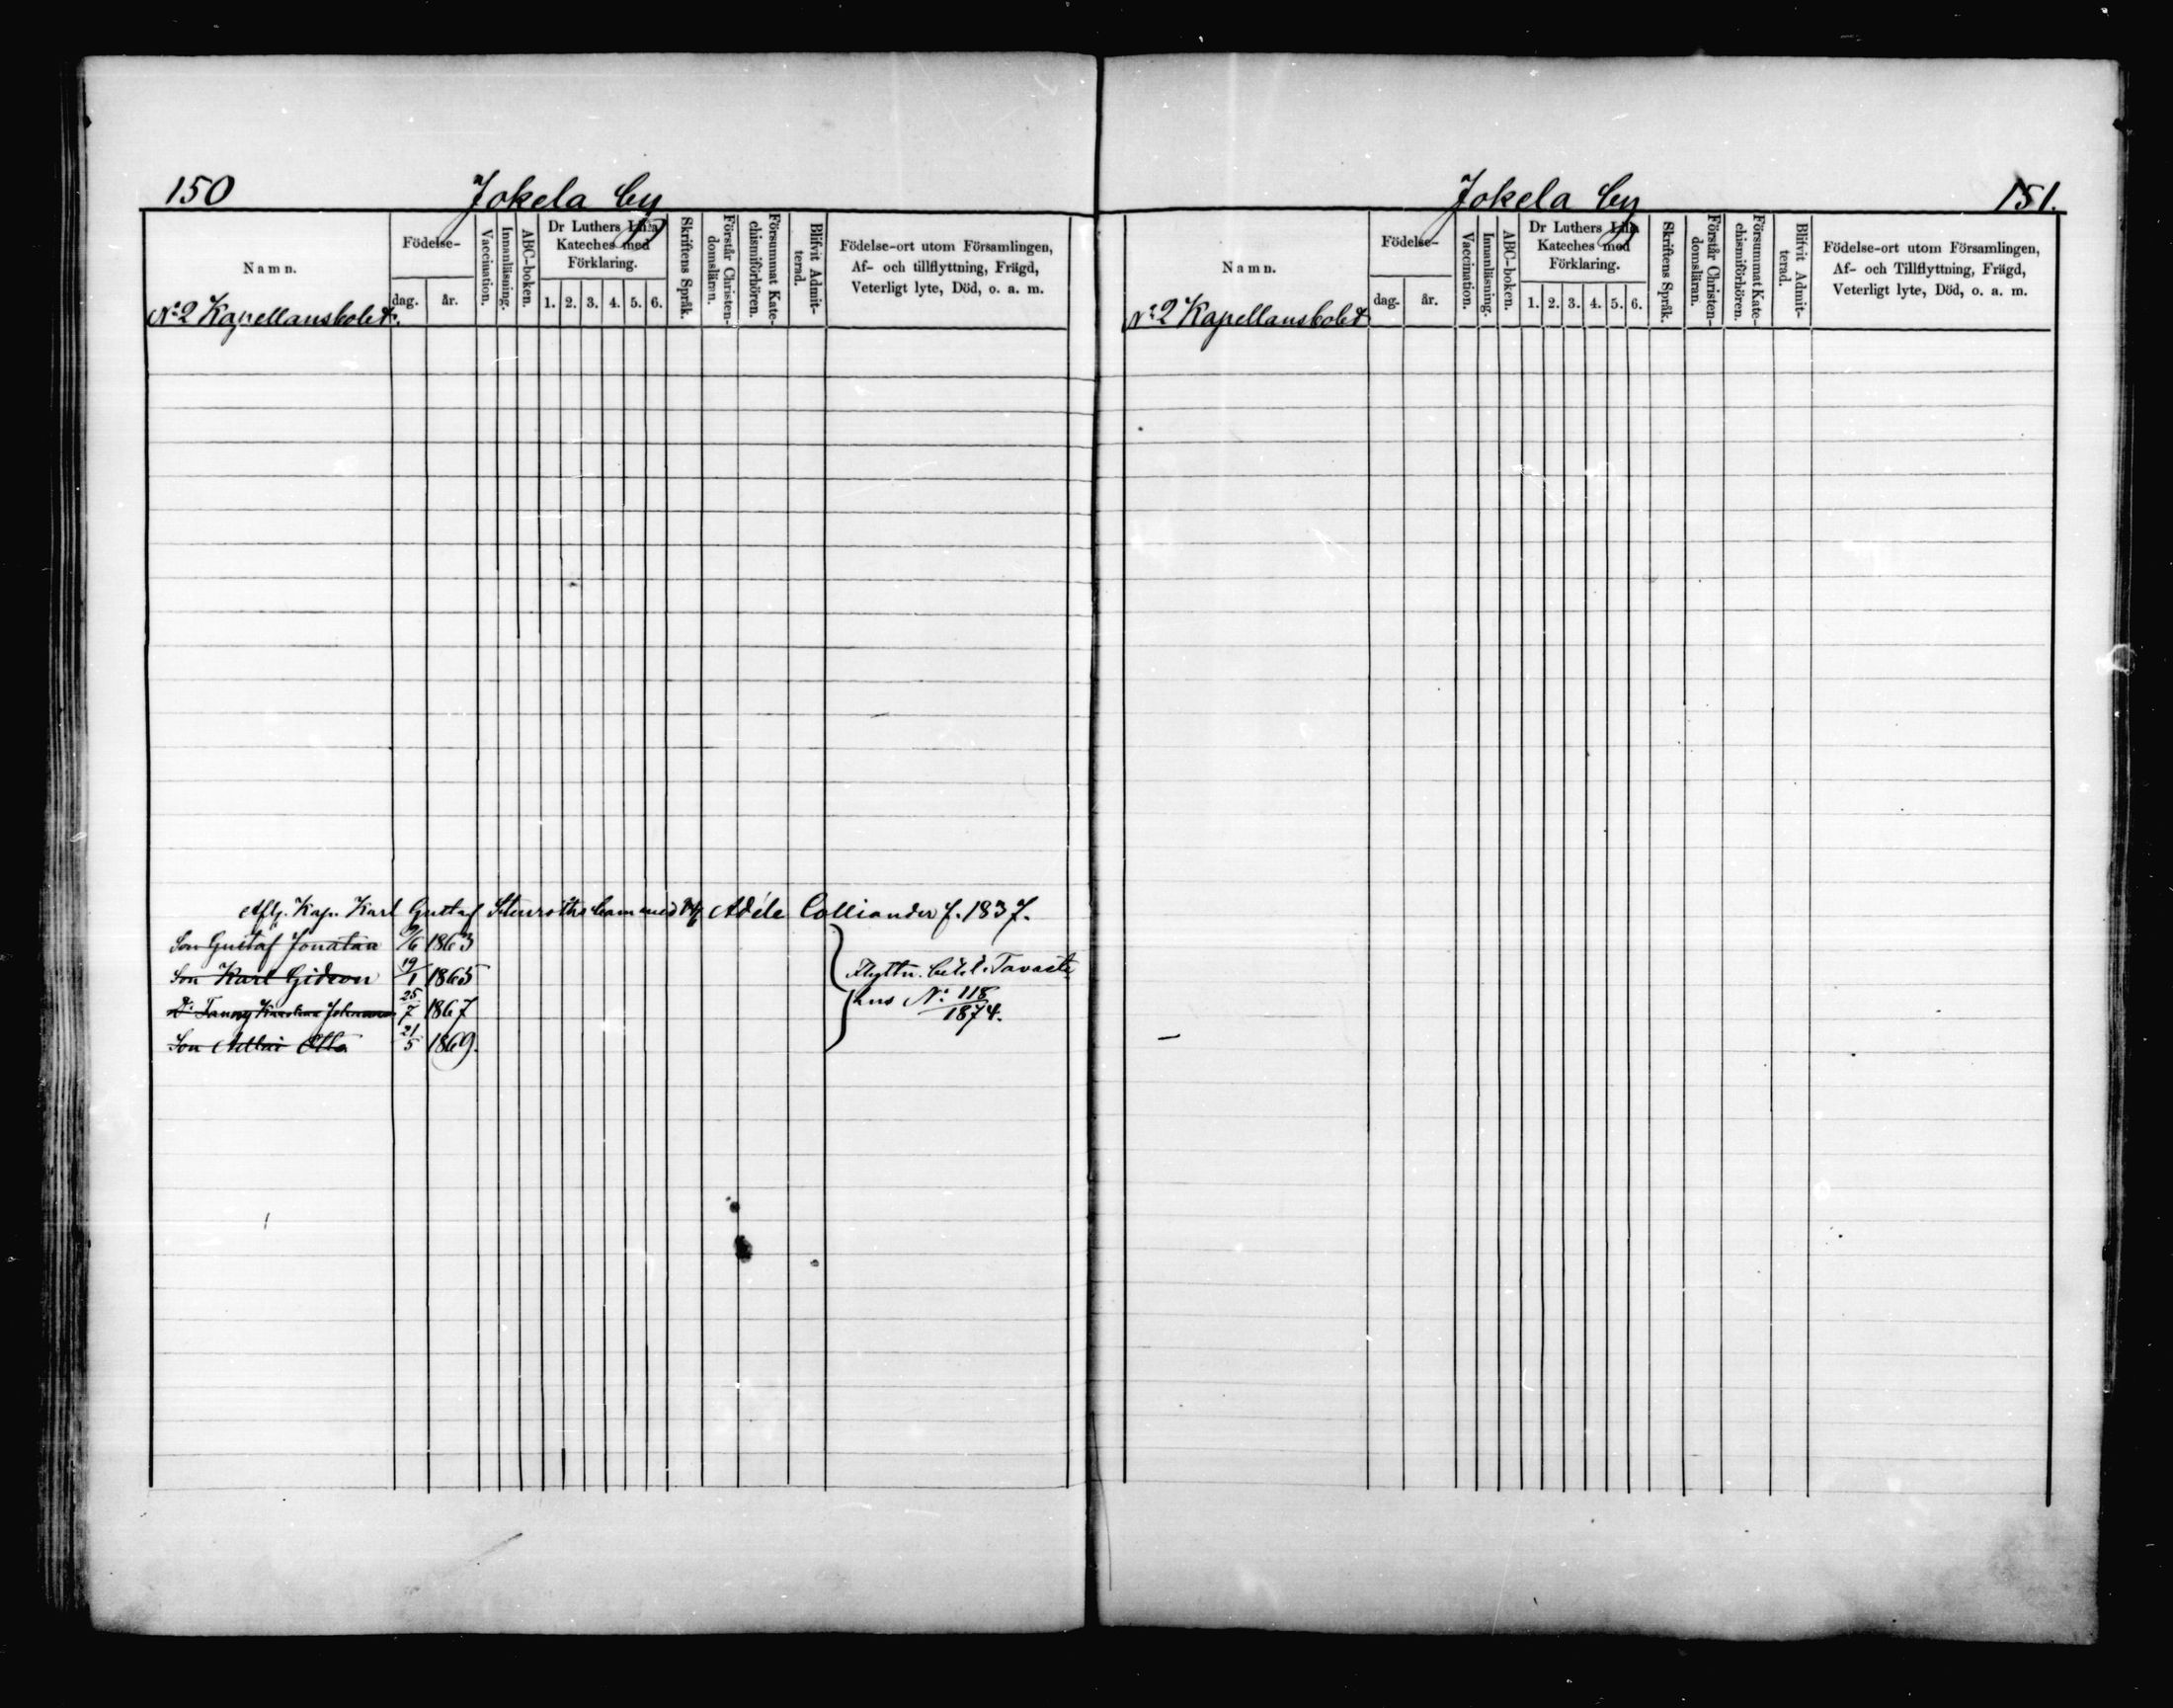 150
Jokela by
Namn.
Födelse-
dag.
år.
Vaccination.
Innanläsning.
ABC-boken.
Dr Luthers Lilla
Kateches med
Förklaring.
1. 2. 3. 4. 5. 6.
Skriftens Språk.
Förstår Christen-
domsläran.
Försummat Kate-
chismiförhören.
Blifvit Admit-
terad.
Födelse-ort utom Församlingen,
Af- och tillflyttning, Frägd,
Veterligt lyte, Död, o. a. m.
No 2 Kapellansbolet.
Afl. Kap. Karl Gustaf Stenroths barn med Adéle Colliander f. 1837.
Son Gustaf Jonatan 9/6 1863
Son Karl Gideon 19/1 1865
Dr Fanny Karolina Johanna 25/7 1867
Son Otto 21/5 1869.
Flyttn. bet. t. Tavaste-
hus No 118
1874.
Jokela by
151.
Namn.
Födelse-
dag.
år.
Vaccination.
Innanläsning.
ABC-boken.
Dr Luthers Lilla
Kateches med
Förklaring.
1. 2. 3. 4. 5. 6.
Skriftens Språk.
Förstår Christen-
domsläran.
Försummat Kate-
chismiförhören.
Blifvit Admit-
terad.
Födelse-ort utom Församlingen,
Af- och Tillflyttning, Frägd,
Veterligt lyte, Död, o. a. m.
No 2 Kapellansbolet